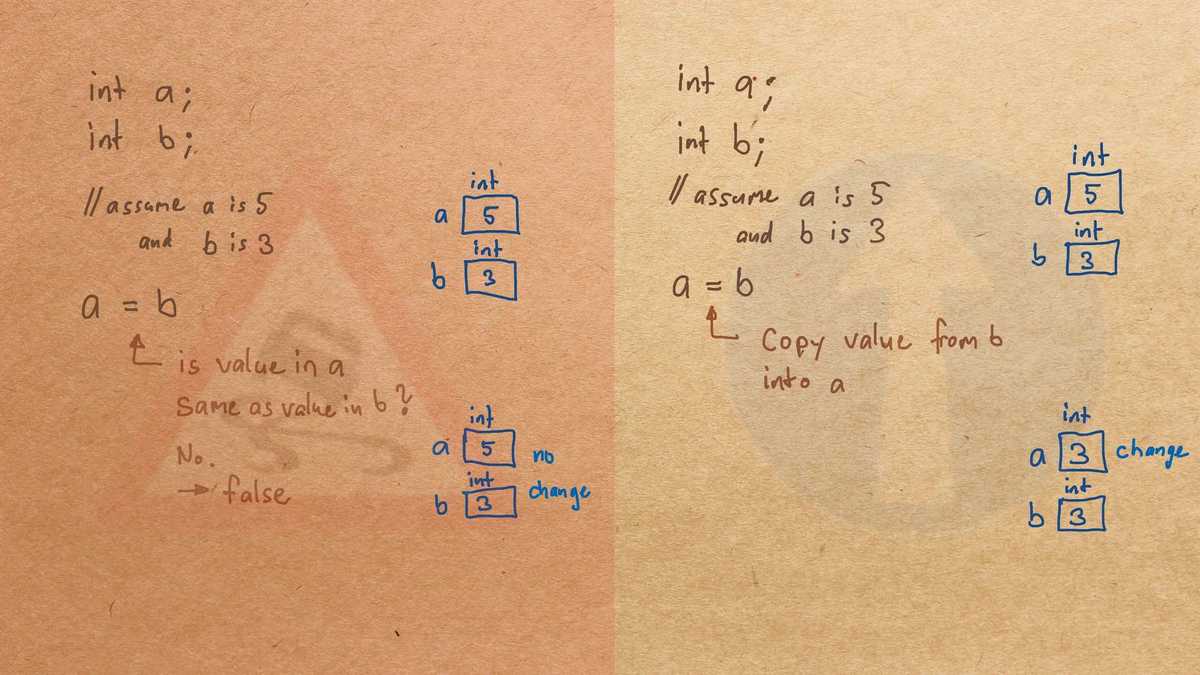 int a;
int b;
//assume a is 5
and b is 3
a = b
is value in a
Same as value in b?
No.
→ false
int
a 5
int
b 3
int
a 5 no
int change
b 3
int a;
int b;
// assume a is 5
and b is 3
a = b
Copy value from b
into a
int
a 5
int
b 3
int
a 3 change
int
b 3